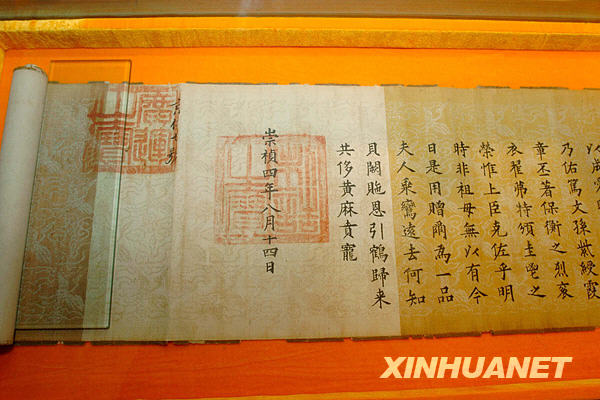 乃佑篤文孫紫綬霞
章丕著保衡之烈袞
衣翟茀特頒圭鬯之
榮惟上臣克佐乎明
時非祖母無以有今
日是用贈爾為一品
夫人乘鸞遠去何知
貝闕貤恩引鶴歸来
共侈黄麻賁寵
崇禎四年八月十四日
制誥之寶
廣運之寶
XINHUANET